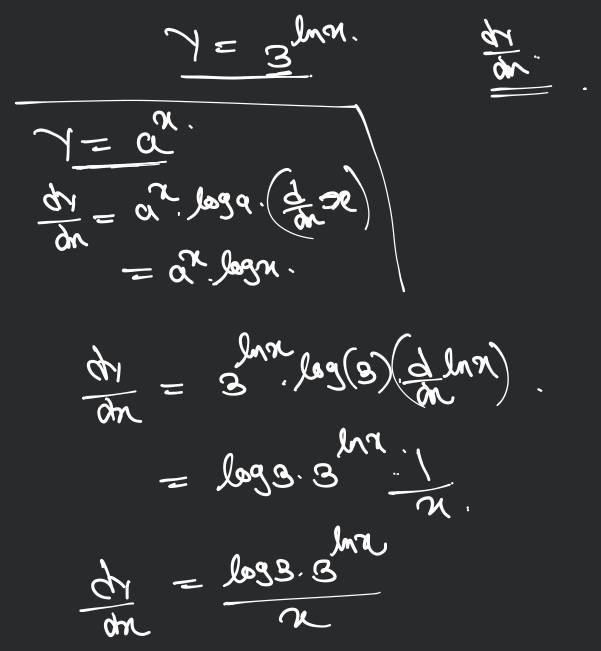 y = 3^{ln x}. dy/dx.
y = a^x.
dy/dx = a^x. log a. (d/dx x)
= a^x. log x.
dy/dx = 3^{ln x}. log(3) (d/dx ln x).
= log 3. 3^{ln x}. 1/x.
dy/dx = log 3. 3^{ln x} / x